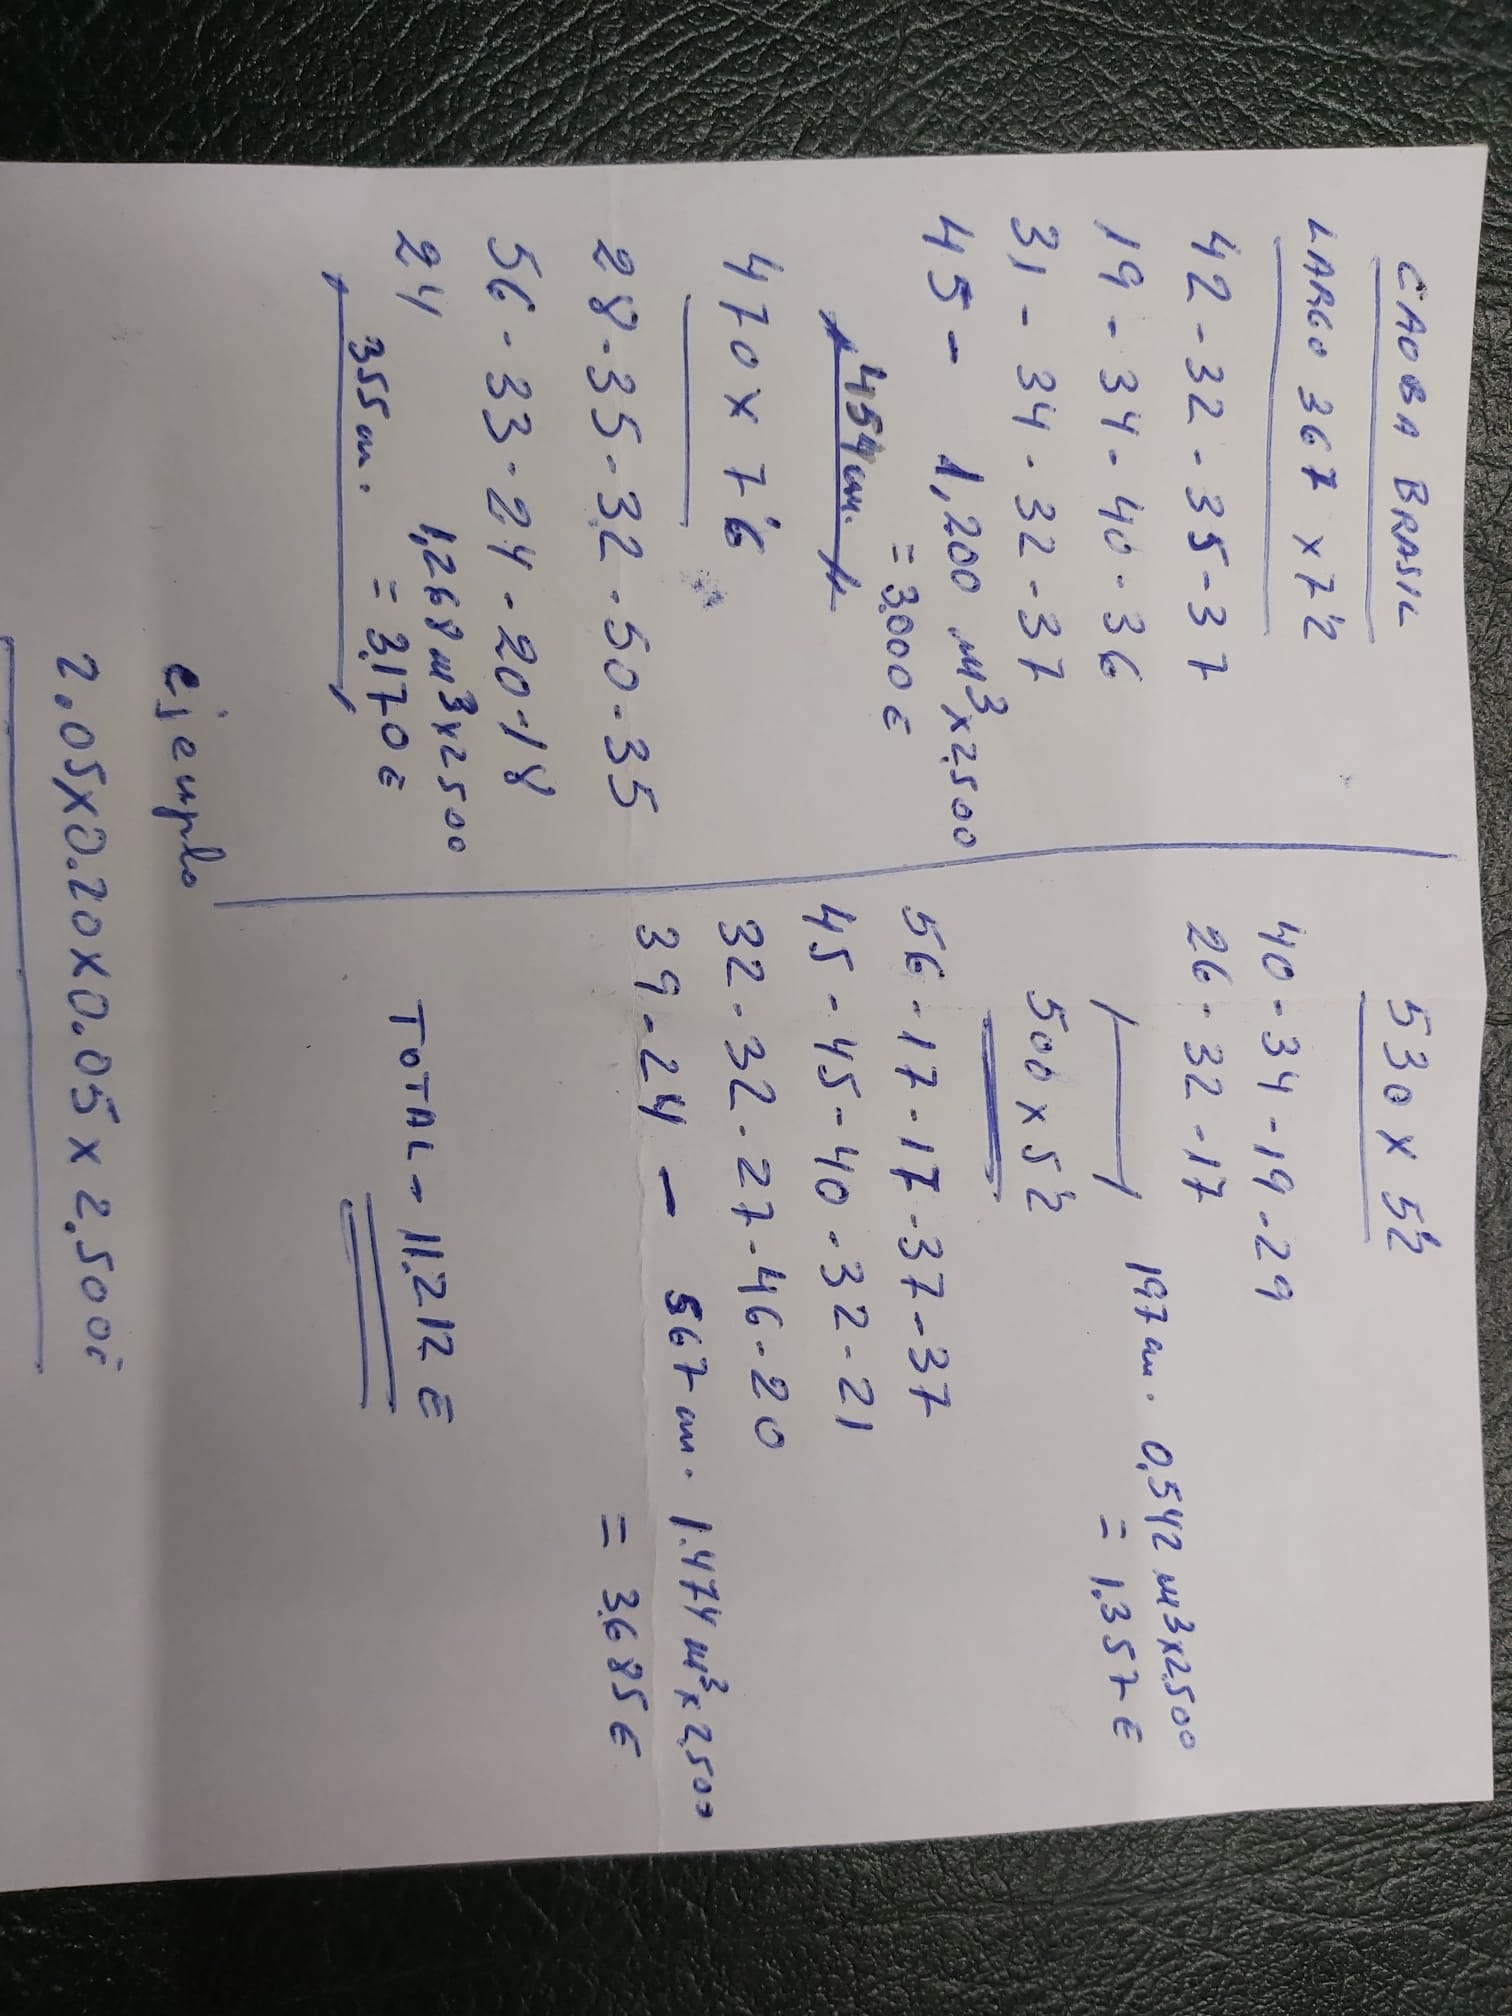 CAOBA BRASIL
LARGO 367 x 7'2
42-32-35-37
19-34-40-36
31-34-32-37
45- 1,200 m3x2,500
= 3.000 €
454 cm.
470 x 7'6
28-35-32-50-35
56-33-24-20-18
24 1,268 m3x2500
355 cm. = 3.170 €
530 x 5'2
40-34-19-29
26-32-17
197 cm. 0,542 m3x2.500
= 1.357 €
500 x 5'2
56-17-17-37-37
45-45-40-32-21
32-32-27-46-20
39-24 - 567 cm. 1.474 m3x2,500
= 3.685 €
TOTAL - 11.212 €
ejemplo
2.05x0.20x0.05x2.500€